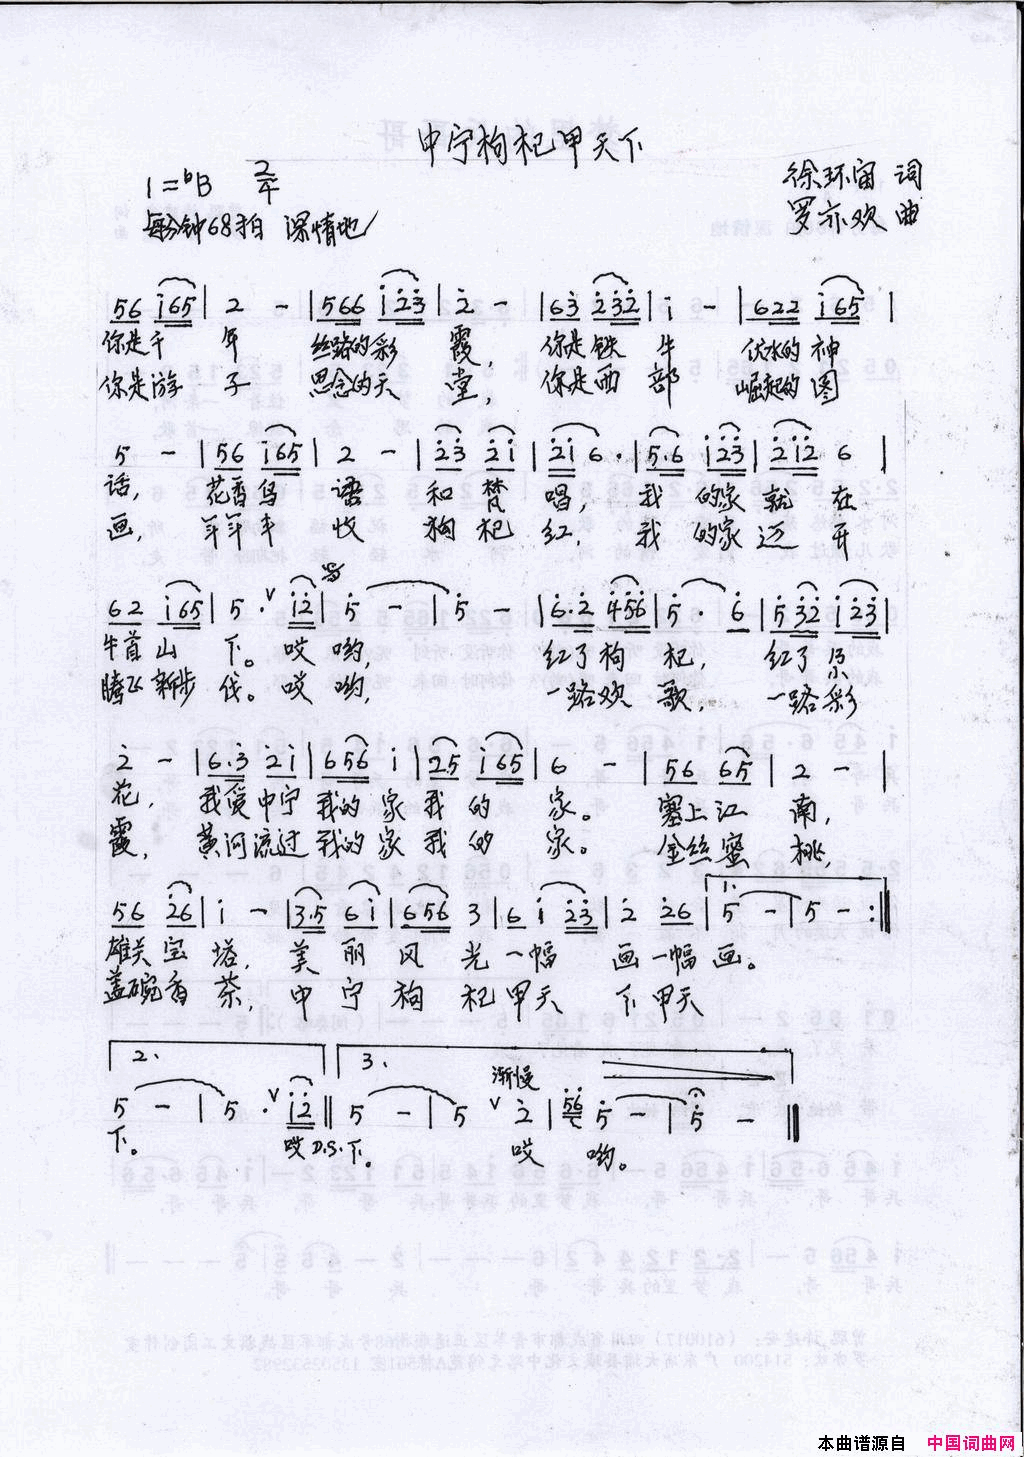 中宁枸杞甲天下
1=ᵇB 2/4
徐环宙 词
每分钟68拍 深情地
罗亦欢 曲
56 i65 | 2 - | 566 i23 | 2 - | 63 232 | i - | 622 i65 |
你是千 年 丝路的彩 霞, 你是铁 牛 伏水的神
你是游 子 思念的天 堂, 你是西 部 崛起的图
5 - | 56 i65 | 2 - | 23 2i | 2i 6· | 5·6 i23 | 2i2 6 |
话, 花香鸟 语 和梵 唱, 我 的家就 在
画, 年年丰 收 枸杞 红, 我 的家迈 开
62 i65 | 5·∨ i2 | 5 - | 5 - | 6·2 456 | 5· 6 | 532 i23 |
牛首山 下。哎 哟, 红了枸 杞, 红了
腾飞新步 伐。哎 哟, 一路欢 歌, 一路彩
2 - | 6·3 2i | 656 i | 25 i65 | 6 - | 56 65 | 2 - |
花, 我爱中宁 我的家 我的 家。 塞上江 南,
霞, 黄河流过 我的家 我的 家。 金丝蜜 桃,
56 26 | i - | 3·5 6i | 656 3 | 6 i 23 | 2 26 | 1. 5 - | 5 - :‖
雄关宝 塔, 美丽 风 光 一幅 画一幅 画。
盖碗香 茶, 中宁 枸 杞 甲天 下甲天
2. 3. 渐慢
5 - | 5·∨ i2 ‖ 5 - | 5 ∨ 2 | 56 5 - | 5 - ‖
下。 哎 D.S. 下。 哎 哟。
本曲谱源自 中国词曲网